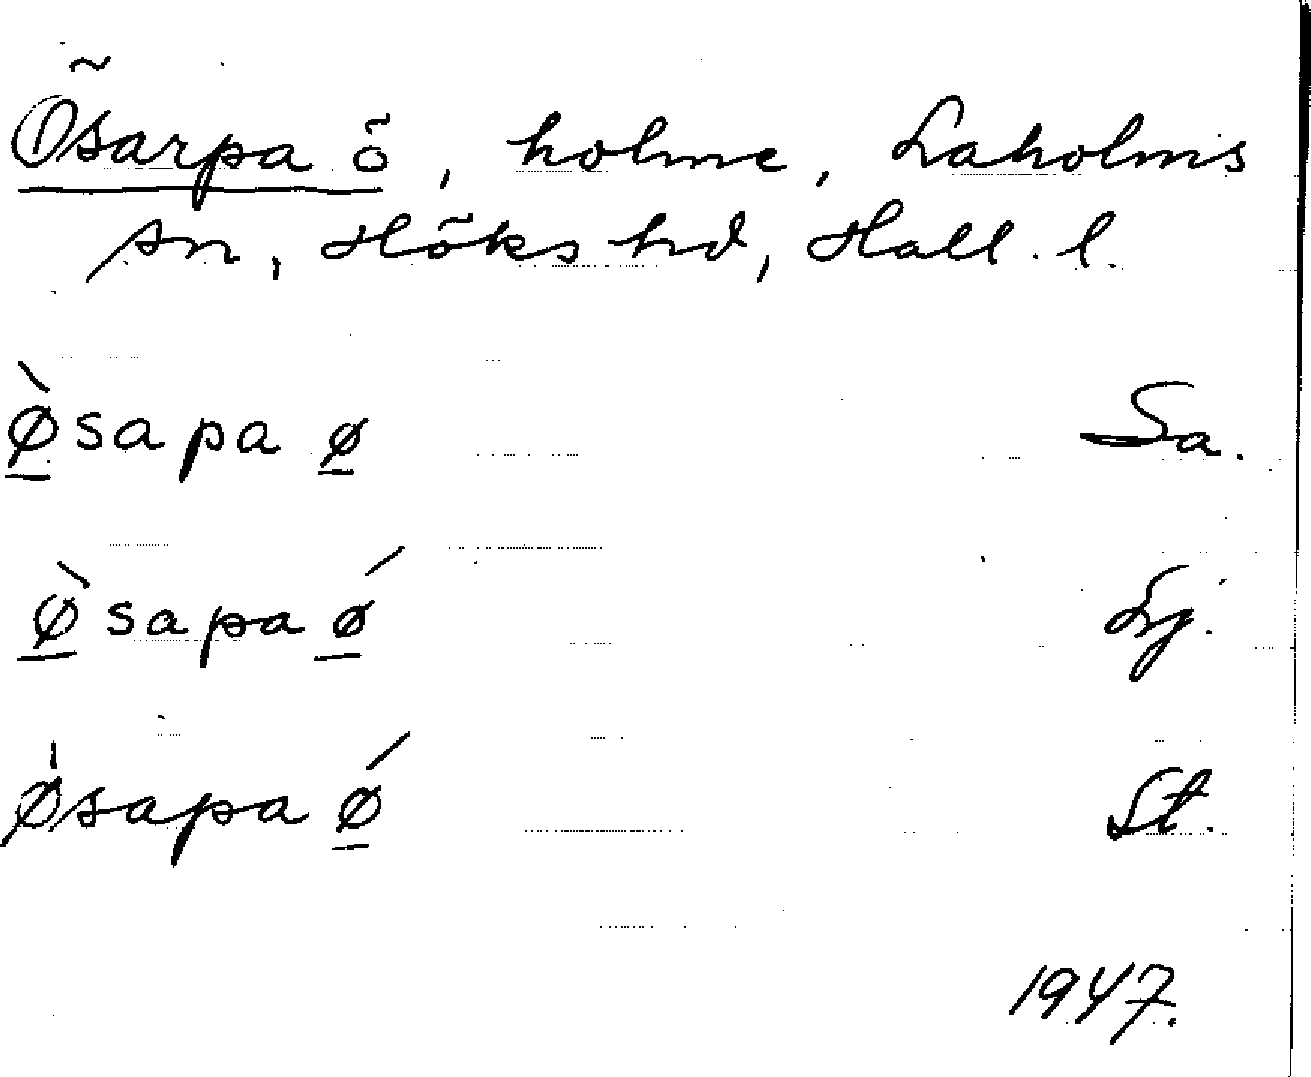 Ösarpa ö, holme, Laholms
sn, Höks hd, Hall. l.
ø̀sapa ø Sa.
ø̀sapa ǿ Lj.
øsapa ǿ St.
1947.